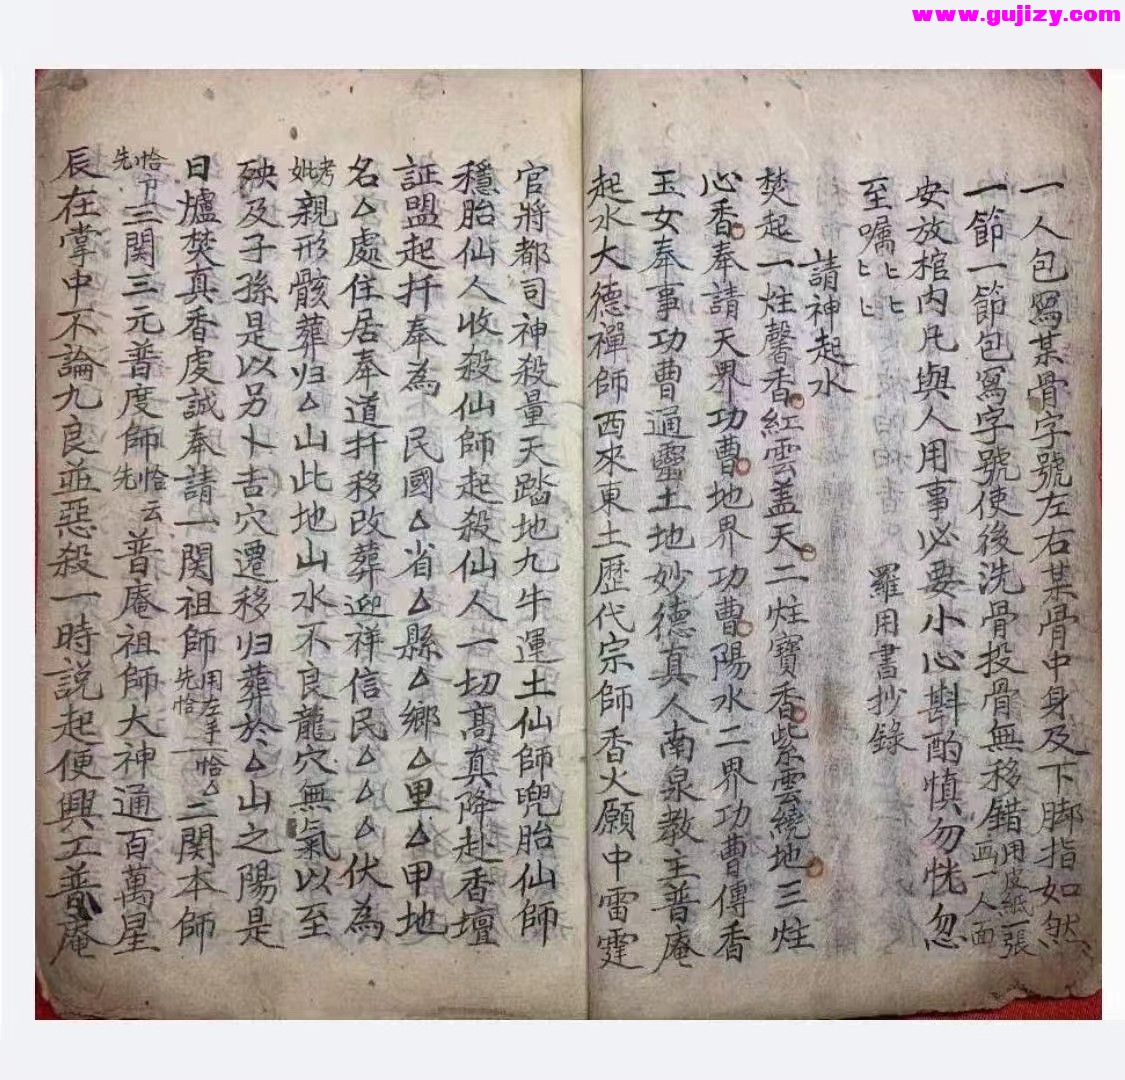 www.gujizy.com
一人包寫某骨字號左右某骨中身及下脚指如然
一節一節包寫字號使後洗骨投骨無移錯用皮紙一張画一人面
安放棺内凡與人用事必要小心斟酌慎勿恍忽
至嘱匕匕匕匕 羅用書抄錄
請神起水
焚起一炷馨香紅雲盖天二炷寶香紫雲繞地三炷
心香奉請天界功曹地界功曹陽水二界功曹傳香
玉女奉事功曹通靈土地妙德真人南泉教主普庵
起水大德禪師西來東土歷代宗師香火願中雷霆
官將都司神殺量天踏地九牛運土仙師兜胎仙師
穩胎仙人收殺仙師起殺仙人一切髙真降赴香壇
証盟起扦奉為 民國△省△縣△鄉△里△甲地
名△處住居奉道扦移改葬迎祥信民△△△伏為
考妣親形骸葬归△山此地山水不良龍穴無氣以至
殃及子孫是以另卜吉穴遷移归葬於△山之陽是
日爐焚真香虔誠奉請一関祖師用左手先恰一恰△二関本師
先恰三関三元普度師先恰云普庵祖師大神通百萬星
辰在掌中不論九良並惡殺一時説起便興工普庵